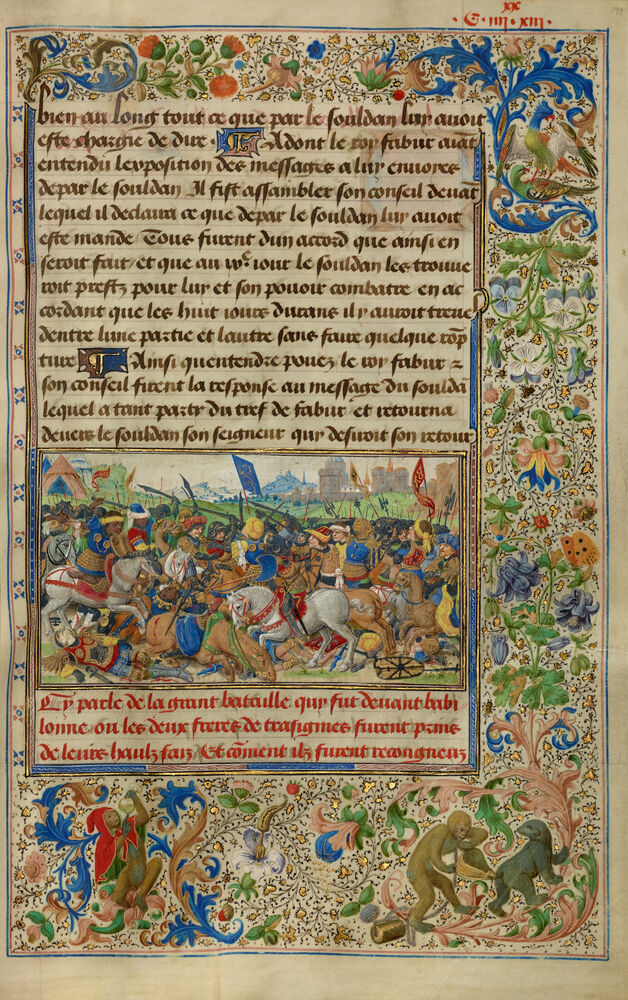 xx
.C. iiii. xiii.
bien au long tout ce que par le souldan luy avoit
este chargie de dire. Adont le roy fabur aiāt
entendu lexposition des messages a luy envoyes
depar le souldan Il fist assambler son conseil devāt
lequel il declaira ce que depar le souldan luy avoit
este mande / Tous furent dun accord que ainsi en
seroit fait / et que au jour le souldan les trouve
roit prestz pour luy et son pouoir combatre en ac
cordant que les huit jours durans il y auroit treve
dentre lune partie et lautre sans faire quelque rōp
ture Ainsi quentendre pouez le roy fabur ⁊
son conseil firent la response au message du souldā
lequel a tant party du tref de fabur et retourna
devers le souldan son seigneur quy desiroit son retour
Cy parle de la grant bataille quy fut devant babi
lonne / ou les deux freres de trasignies furent prins
de leurs haulz fais / Et cōment ilz furent recongneuz